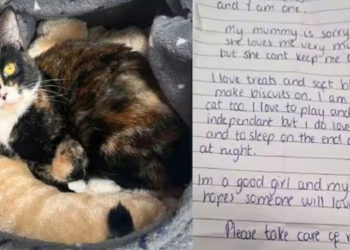 and I am one.
my mummy is sorry
she loves me very mu
but she cant keep me
I love treats and soft bl
make biscuits on. I am
cat too. I love to play and
independant but i do lov
and to sleep on the end o
at night.
Im a good girl and my
hopes someone will lov
Please take care of